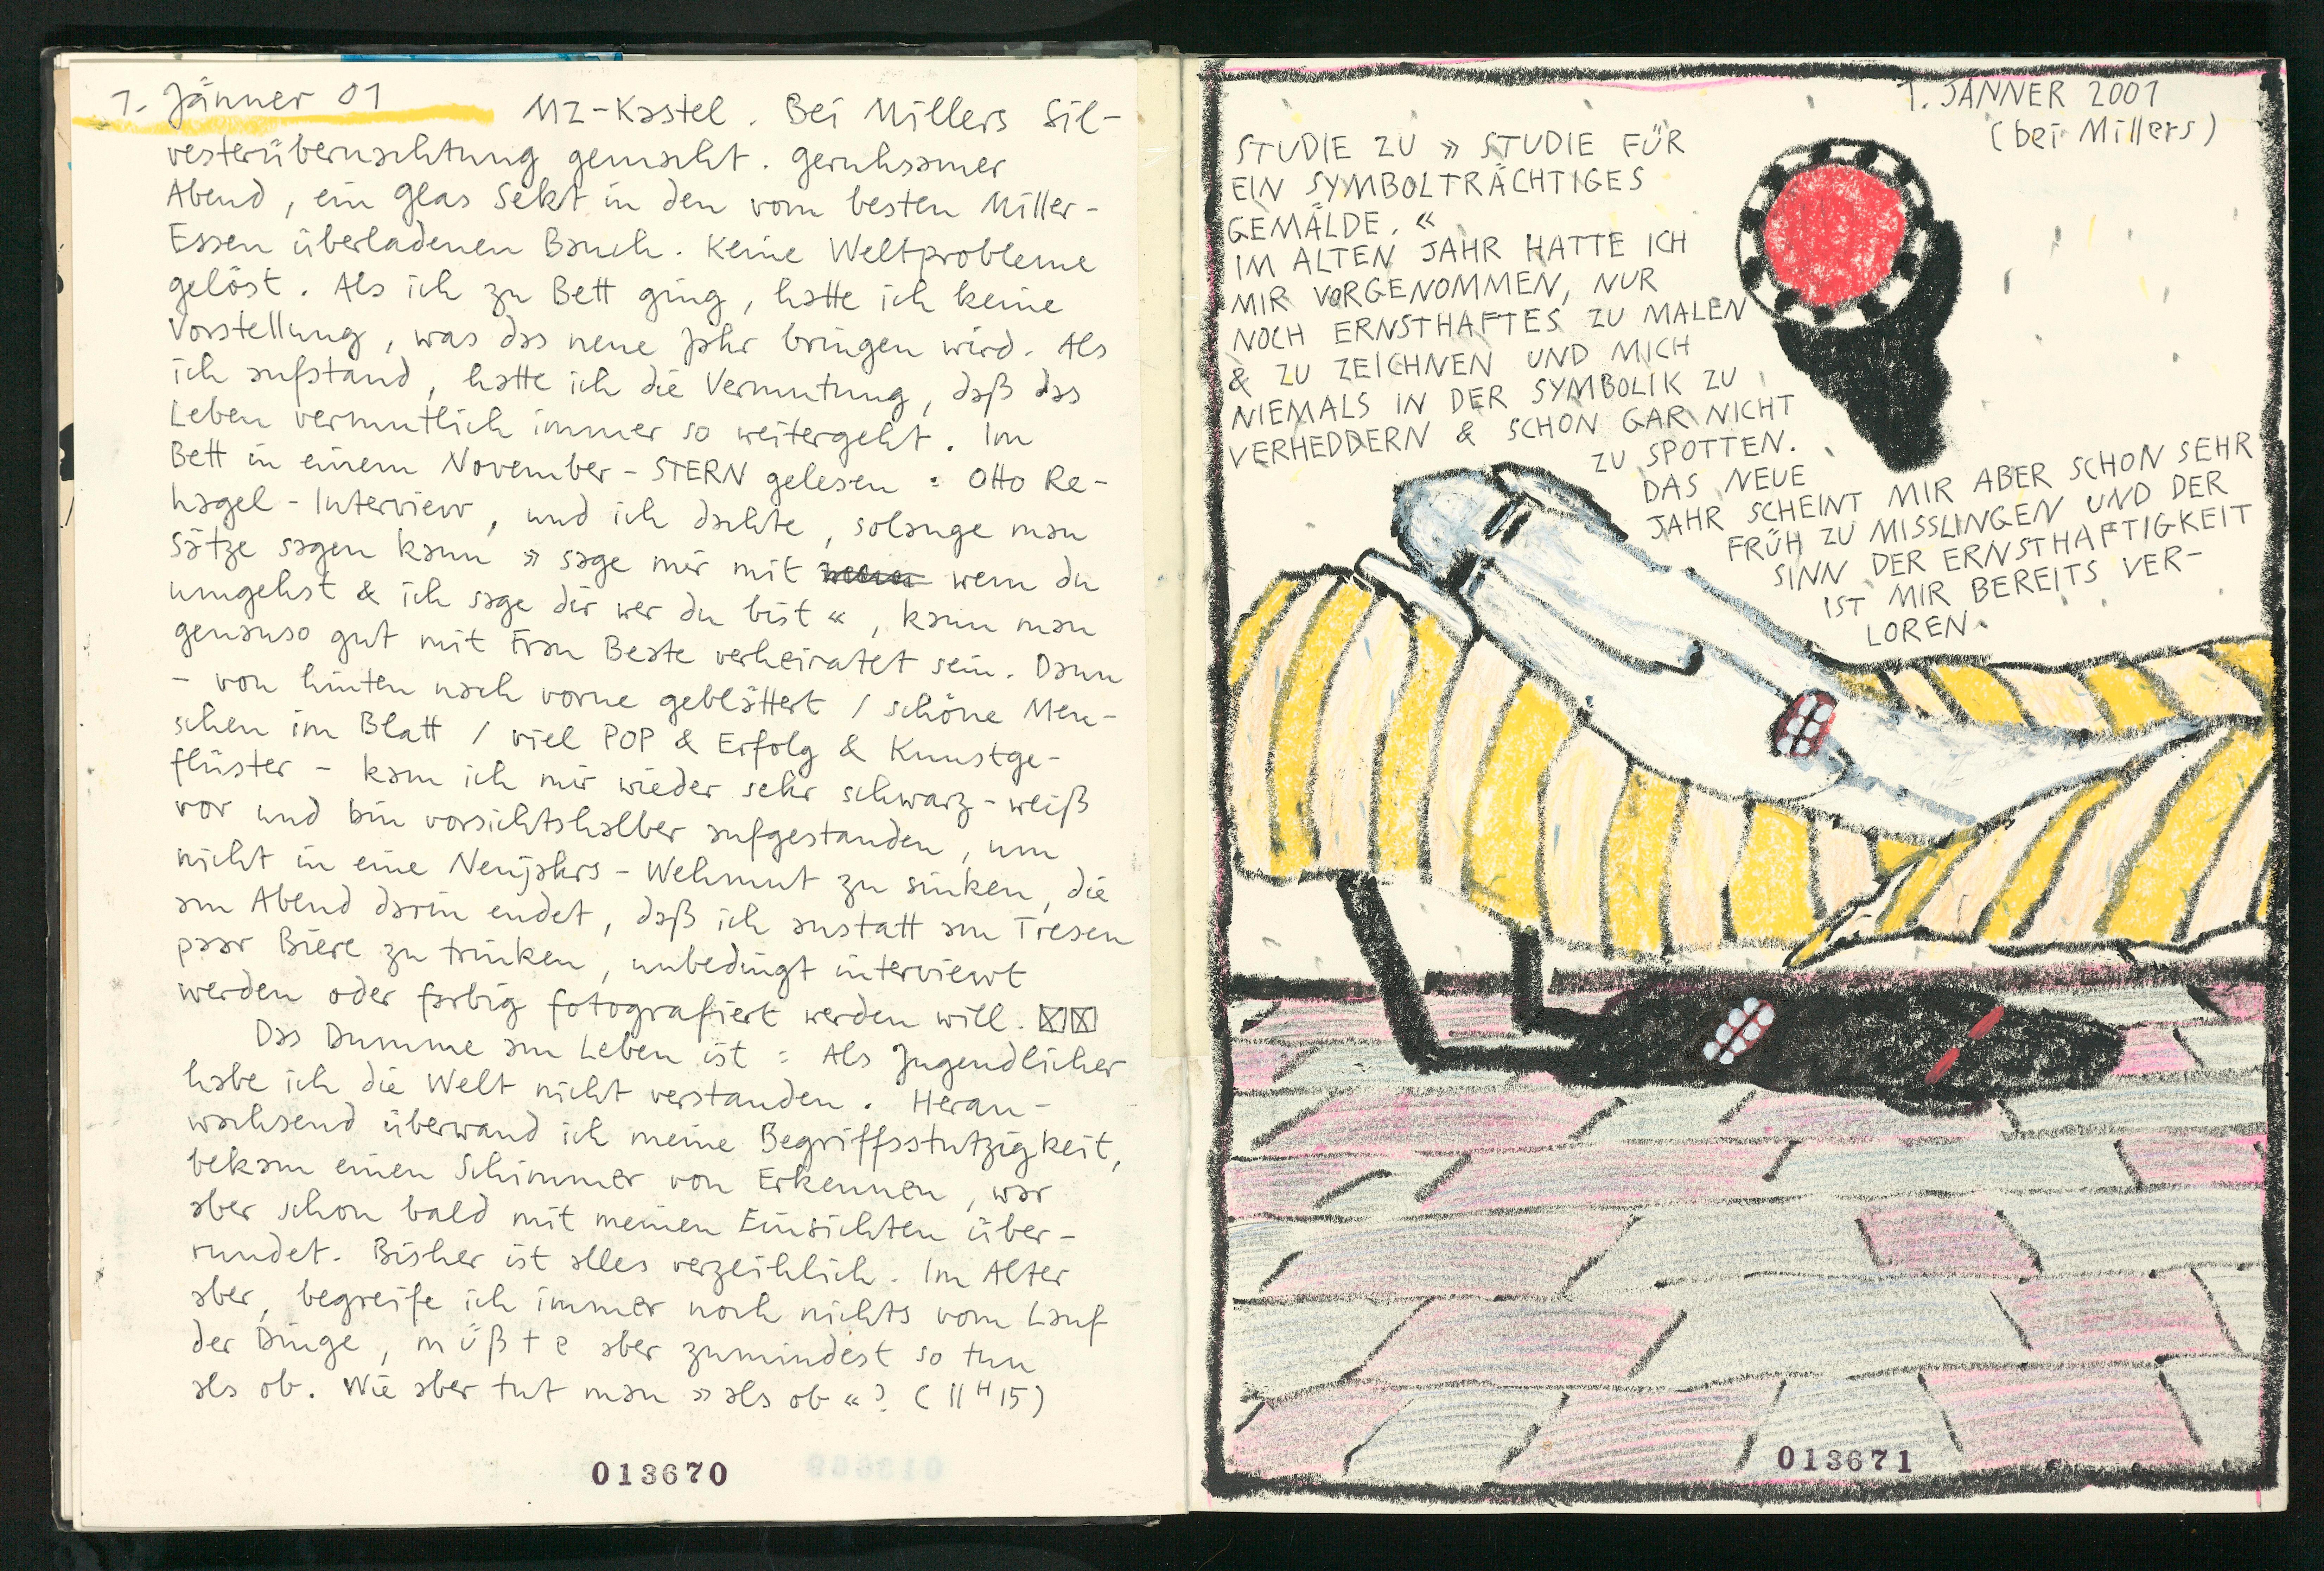 1. Jänner 01
MZ-Kastel. Bei Millers Sil-
vesterübernachtung gemacht. geruhsamer
Abend, ein glas Sekt in den vom besten Miller-
Essen überladenen Bauch. Keine Weltprobleme
gelöst. Als ich zu Bett ging, hatte ich keine
Vorstellung, was das neue Jahr bringen wird. Als
ich aufstand, hatte ich die Vermutung, daß das
Leben vermutlich immer so weitergeht. Im
Bett in einem November-STERN gelesen: Otto Re-
hagel-Interview, und ich dachte, solange man
Sätze sagen kann »sage mir mit wem du
umgehst & ich sage dir wer du bist«, kann man
genauso gut mit Frau Beate verheiratet sein. Dann
- von hinten nach vorne geblättert / schöne Men-
schen im Blatt / viel POP & Erfolg & Kunstge-
flüster - kam ich mir wieder sehr schwarz-weiß
vor und bin vorsichtshalber aufgestanden, um
nicht in eine Neujahrs-Wehmut zu sinken, die
am Abend darin endet, daß ich anstatt am Tresen
paar Biere zu trinken, unbedingt interviewt
werden oder farbig fotografiert werden will.
Das Dumme am Leben ist: Als Jugendlicher
habe ich die Welt nicht verstanden. Heran-
wachsend überwand ich meine Begriffsstutzigkeit,
bekam einen Schimmer von Erkennen, war
aber schon bald mit meinen Einsichten über-
rundet. Bisher ist alles verzeihlich. Im Alter
aber, begreife ich immer noch nichts vom Lauf
der Dinge, müßte aber zumindest so tun
als ob. Wie aber tut man »als ob«? (11 H 15)
013670
1. JÄNNER 2001
(bei Millers)
STUDIE ZU »STUDIE FÜR
EIN SYMBOLTRÄCHTIGES
GEMÄLDE.«
IM ALTEN JAHR HATTE ICH
MIR VORGENOMMEN, NUR
NOCH ERNSTHAFTES ZU MALEN
& ZU ZEICHNEN UND MICH
NIEMALS IN DER SYMBOLIK ZU
VERHEDDERN & SCHON GAR NICHT
ZU SPOTTEN.
DAS NEUE
JAHR SCHEINT MIR ABER SCHON SEHR
FRÜH ZU MISSLINGEN UND DER
SINN DER ERNSTHAFTIGKEIT
IST MIR BEREITS VER-
LOREN.
013671